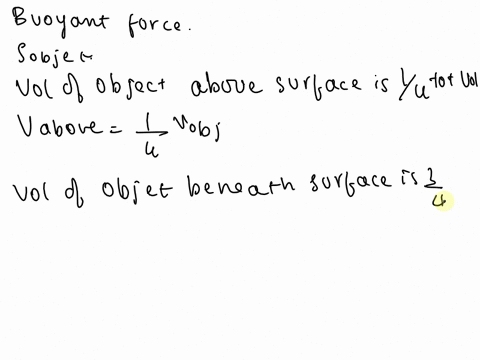 Buoyant force.
Sobject
Vol of object above surface is 1/4 tot Vol
Vabove = 1/4 Vobj
Vol of objet beneath surface is 3/4